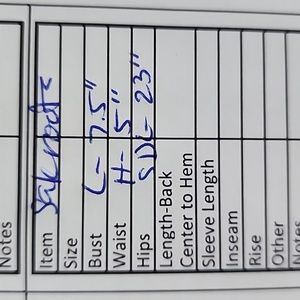 Notes
Item
Size
Bust L- 7.5"
Waist H- 5"
Hips SDL- 23"
Length-Back
Center to Hem
Sleeve Length
Inseam
Rise
Other
Notes